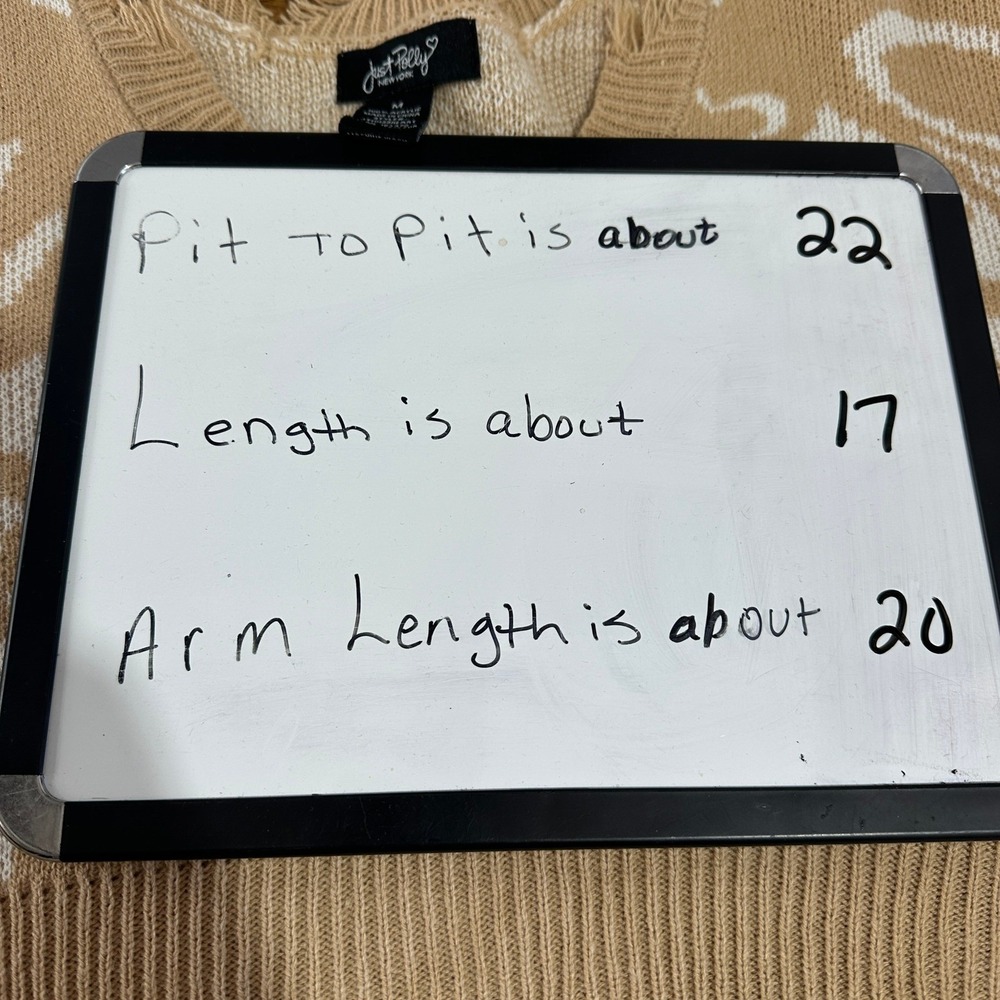 Just Polly
NEW YORK
M
Pit To Pit is about 22
Length is about 17
Arm Length is about 20